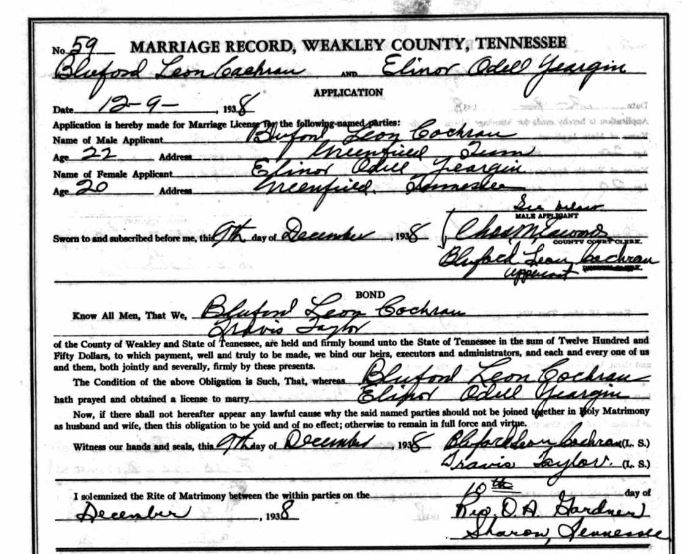 No. 59 MARRIAGE RECORD, WEAKLEY COUNTY, TENNESSEE
Bluford Leon Cochran AND Elinor Odell Yeargin
APPLICATION
Date 12-9-, 1938
Application is hereby made for Marriage License for the following-named parties:
Name of Male Applicant Bluford Leon Cochran
Age 22 Address Greenfield Tenn
Name of Female Applicant Elinor Odell Yeargin
Age 20 Address Greenfield, Tennessee
See below
MALE APPLICANT
Sworn to and subscribed before me, this 9th day of December, 1938 Chas M
COUNTY COURT CLERK.
Bluford Leon Cochran
applicant
BOND
Know All Men, That We, Bluford Leon Cochran
Travis Taylor
of the County of Weakley and State of Tennessee, are held and firmly bound unto the State of Tennessee in the sum of Twelve Hundred and
Fifty Dollars, to which payment, well and truly to be made, we bind our heirs, executors and administrators, and each and every one of us
and them, both jointly and severally, firmly by these presents.
The Condition of the above Obligation is Such, That, whereas Bluford Leon Cochran
hath prayed and obtained a license to marry Elinor Odell Yeargin
Now, if there shall not hereafter appear any lawful cause why the said named parties should not be joined together in Holy Matrimony
as husband and wife, then this obligation to be void and of no effect; otherwise to remain in full force and virtue.
Witness our hands and seals, this 9th day of December, 1938 Bluford Leon Cochran (L. S.)
Travis Taylor. (L. S.)
I solemnized the Rite of Matrimony between the within parties on the 10th day of
December, 1938 Rev. O. A. Gardner
Sharon, Tennessee